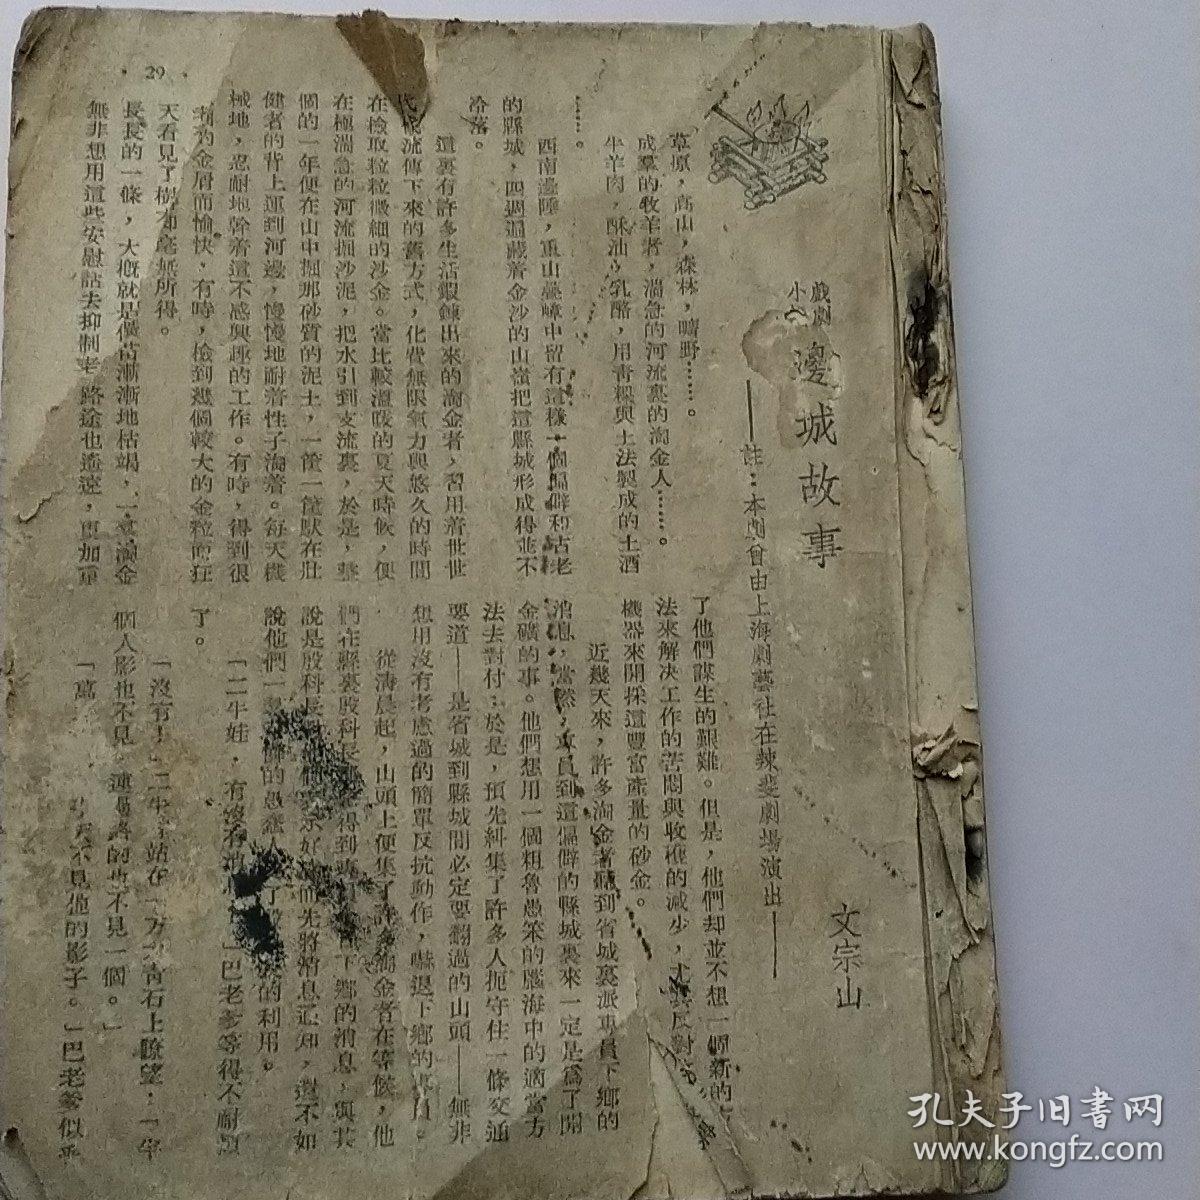 戲劇
小
邊城故事
文宗山
——註：本劇曾由上海劇藝社在辣斐劇場演出——
草原，高山，森林，曠野……。
成羣的牧羊者，湍急的河流裏的淘金人……。
牛羊肉，酥油，乳酪，用青稞與土法製成的土酒
……。
西南邊陲，重山疊嶂中留有這樣一個偏僻和古老
的縣城，四週還藏着金沙的山嶺把這縣城形成得並不
冷落。
這裏有許多生活鍛鍊出來的淘金者，習用着世世
代代流傳下來的舊方式，化費無限氣力與悠久的時間
在檢取粒粒微細的沙金。當比較溫暖的夏天時候，便
在極湍急的河流掘沙泥，把水引到支流裏，於是，整
個的一年便在山中掘那砂質的泥土，一筐一筐馱在壯
健者的背上運到河邊，慢慢地耐着性子淘着。每天機
械地，忍耐地幹着這不感興趣的工作。有時，得到很
的金屑而愉快，有時，檢到幾個較大的金粒而狂
天看見了樹木却毫無所得。
長長的一條，大概就是
漸漸地枯竭，一羣淘金
無非想用這些安慰話去抑制老
路途也遙遠，更加重
了他們謀生的艱難。但是，他們却並不想一個新的
法來解決工作的苦悶與收穫的減少，
反對
機器來開採這豐富產量的砂金。
近幾天來，許多淘金者聽到省城裏派專員下鄉的
消息，當然，專員到這偏僻的縣城裏來一定是爲了開
金礦的事。他們想用一個粗魯愚笨的腦海中的適當方
法去對付；於是，預先糾集了許多人扼守住一條交通
要道——是省城到縣城間必定要翻過的山頭——無非
想用沒有考慮過的簡單反抗動作，嚇退下鄉的專員。
從淸晨起，山頭上便集了許多淘金者在等候，他
們在縣裏殷科長
得到專
下鄉的消息，與其
說是殷科長
示好
而先將消息通知，還不如
說他們一
的愚蠢人
了
的利用。
「二牛娃，有沒有消
」巴老爹等得不耐煩
了。
「沒有！」二牛
站在一方
靑石上瞭望；「半
個人影也不見，連
的也不見一個。」
「萬
不見他的影子。」巴老爹似乎
29
孔夫子旧書网
www.kongfz.com